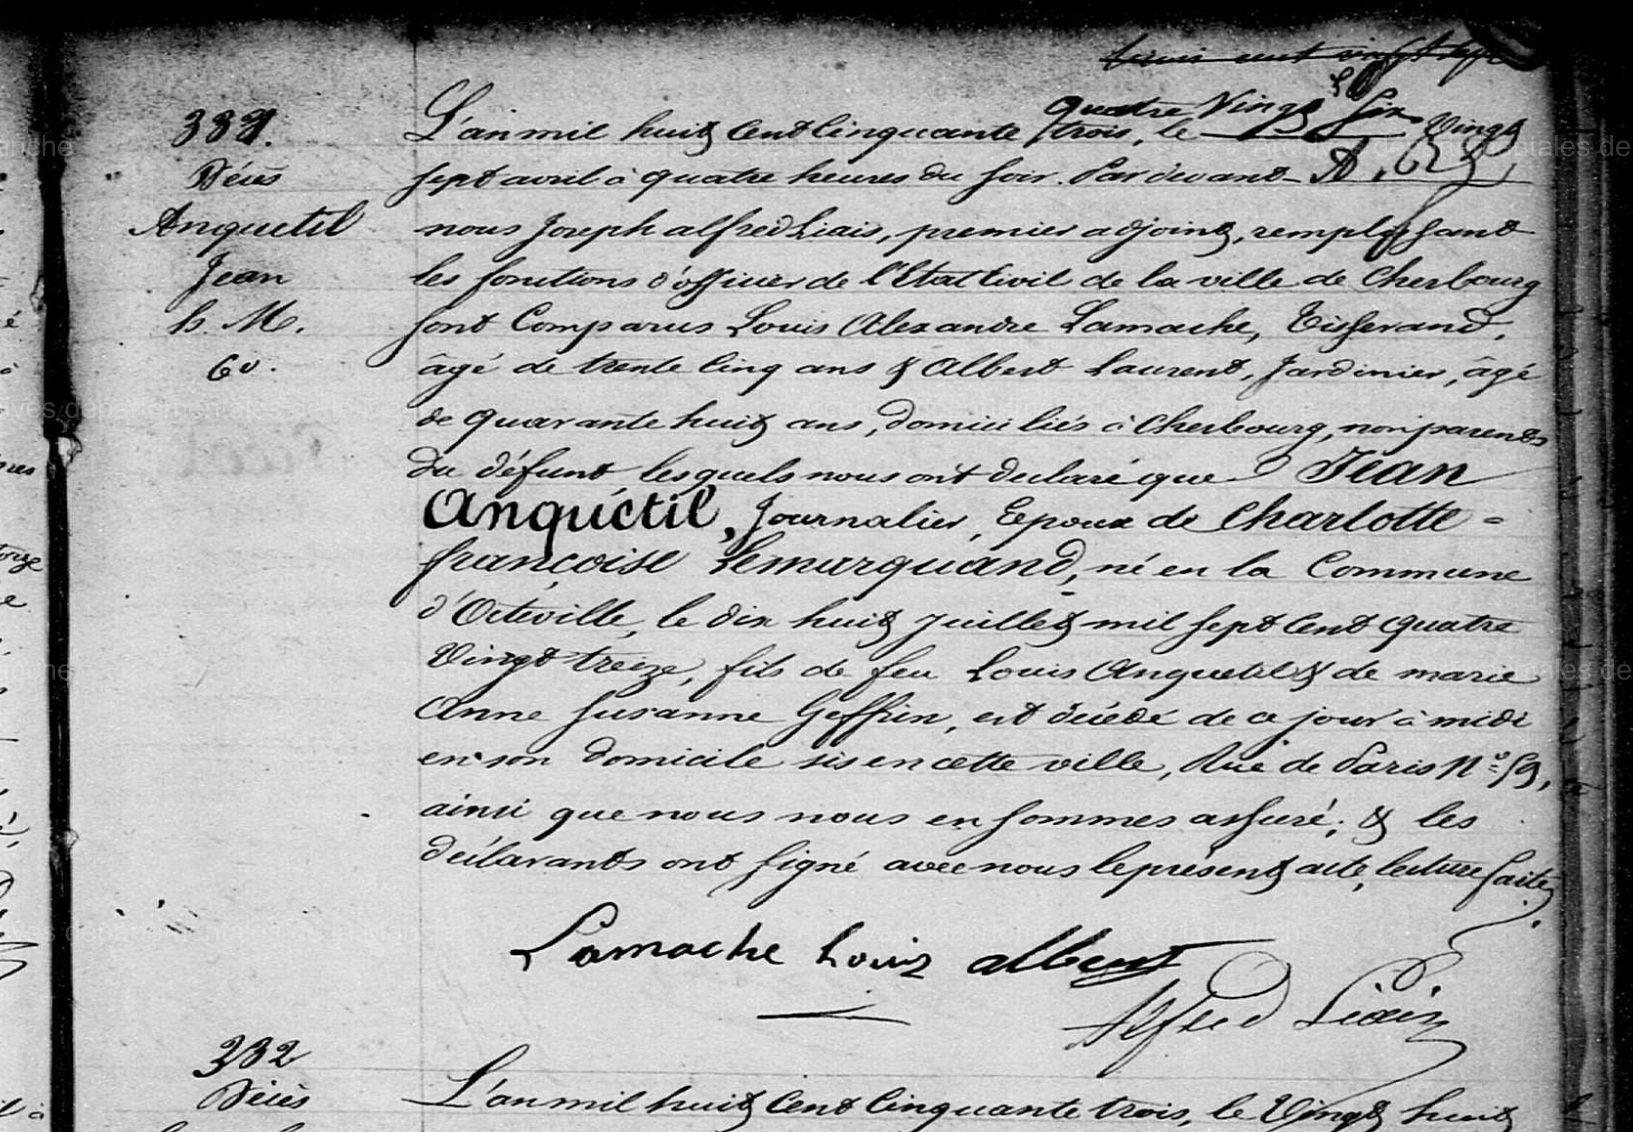 trois cent vingt sept
quatre Vingt Six
331.
L'an mil huit Cent Cinquante trois, le Vingt
Décès
sept avril à quatre heures du soir. Pardevant
Anquetil
nous Joseph alfred Liais, premier adjoint, remplissant
Jean
les fonctions d'officier de l'Etat Civil de la ville de Cherbourg
h. M.
sont Comparus Louis Alexandre Lamache, Tisserand,
60.
âgé de trente Cinq ans & Albert Laurent, Jardinier, âgé
de quarante huit ans, domiciliés à Cherbourg, non parents
du défunt, lesquels nous ont declaré que Jean
Anquétil, Journalier, Epoux de Charlotte -
françoise Lemarquand, né en la Commune
d'Octeville, le dix huit Juillet mil sept Cent quatre
Vingt treize, fils de feu Louis Anquetil & de marie
Anne Susanne Geffrin, est décédé de ce jour à midi
en son domicile sis en cette ville, Rue de Paris N° 59,
ainsi que nous nous en sommes assuré; & les
déclarants ont signé avec nous le présent acte, lecture faite.
Lamache Louis albert
Alfred Liais
332
Décès
L'an mil huit Cent Cinquante trois, le Vingt huit